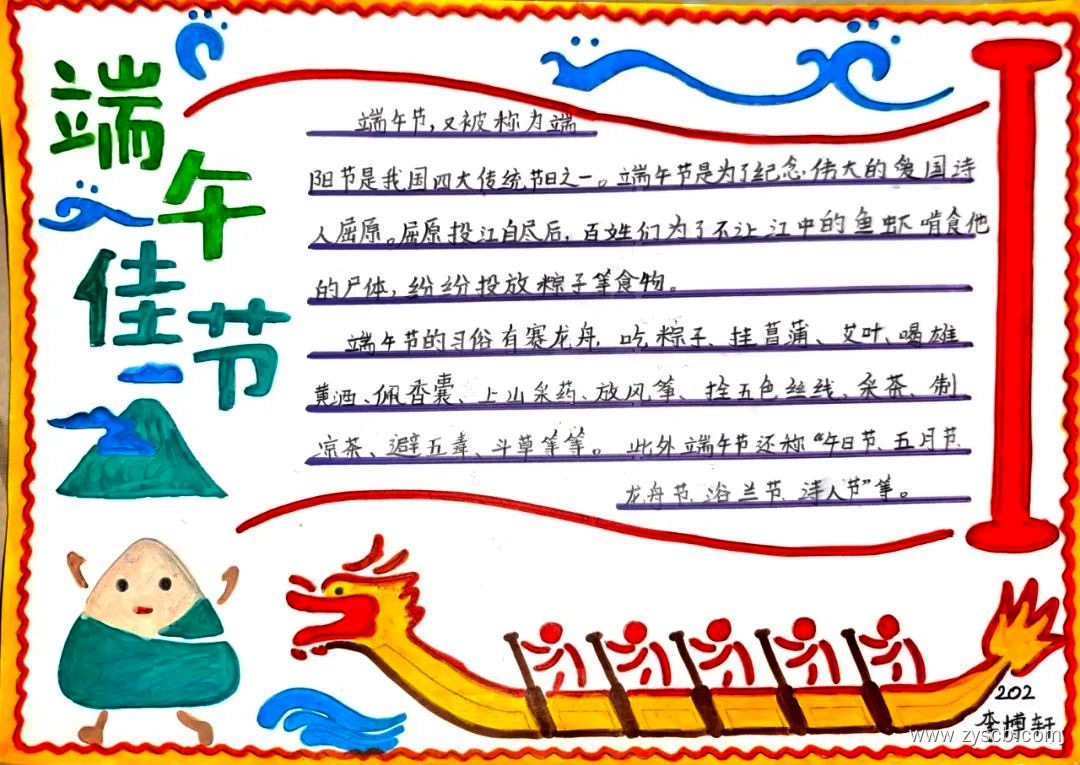 端午
佳节
端午节，又被称为端
阳节是我国四大传统节日之一。端午节是为了纪念伟大的爱国诗
人屈原。屈原投江自尽后，百姓们为了不让江中的鱼虾啃食他
的尸体，纷纷投放粽子等食物。
端午节的习俗有赛龙舟，吃粽子、挂菖蒲、艾叶、喝雄
黄酒、佩香囊、上山采药、放风筝、拴五色丝线、采茶、制
凉茶、避五毒、斗草等等。此外端午节还称“午日节、五月节、
龙舟节、浴兰节、诗人节”等。
202
李博轩
www.zyscb.com